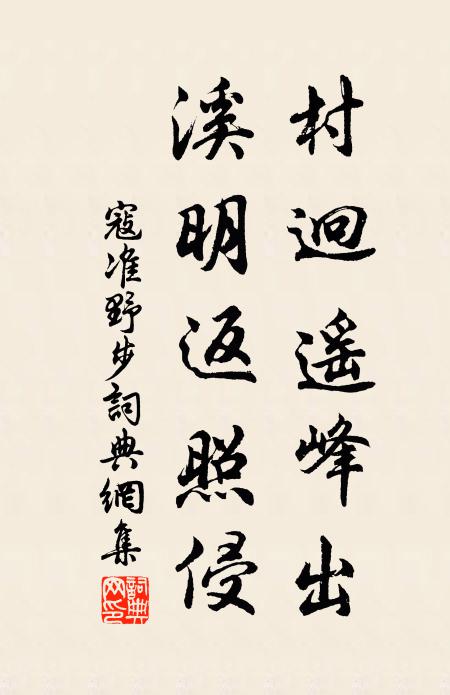 村迥遥峰出
溪明返照侵
寇准野步詞典網集
詞典網印